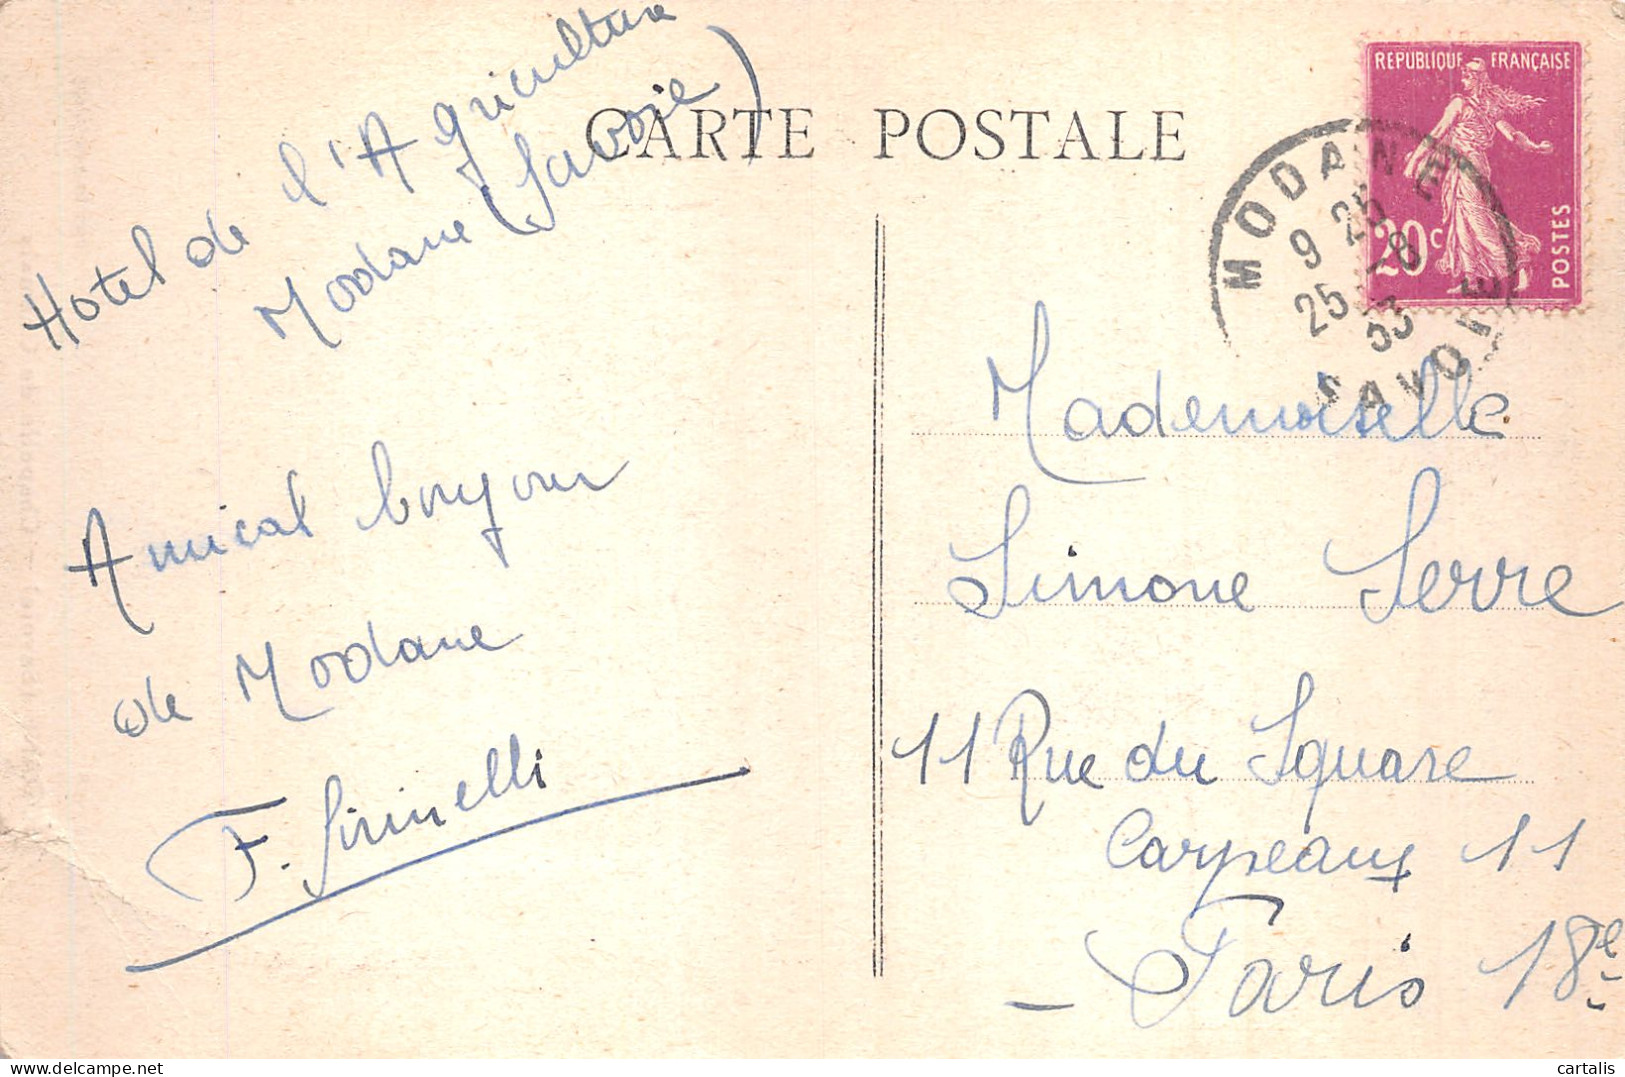 Hotel de l'Agriculture
Modane (Savoie)
CARTE POSTALE
REPUBLIQUE FRANÇAISE
20c
POSTES
MODANE
9 25
25 8
35
SAVOIE
Amical bonjour
de Modane
F. Sirinelli
Mademoiselle
Simone Serre
11 Rue du Square
Carpeaux 11
- Paris 18e
cartalis